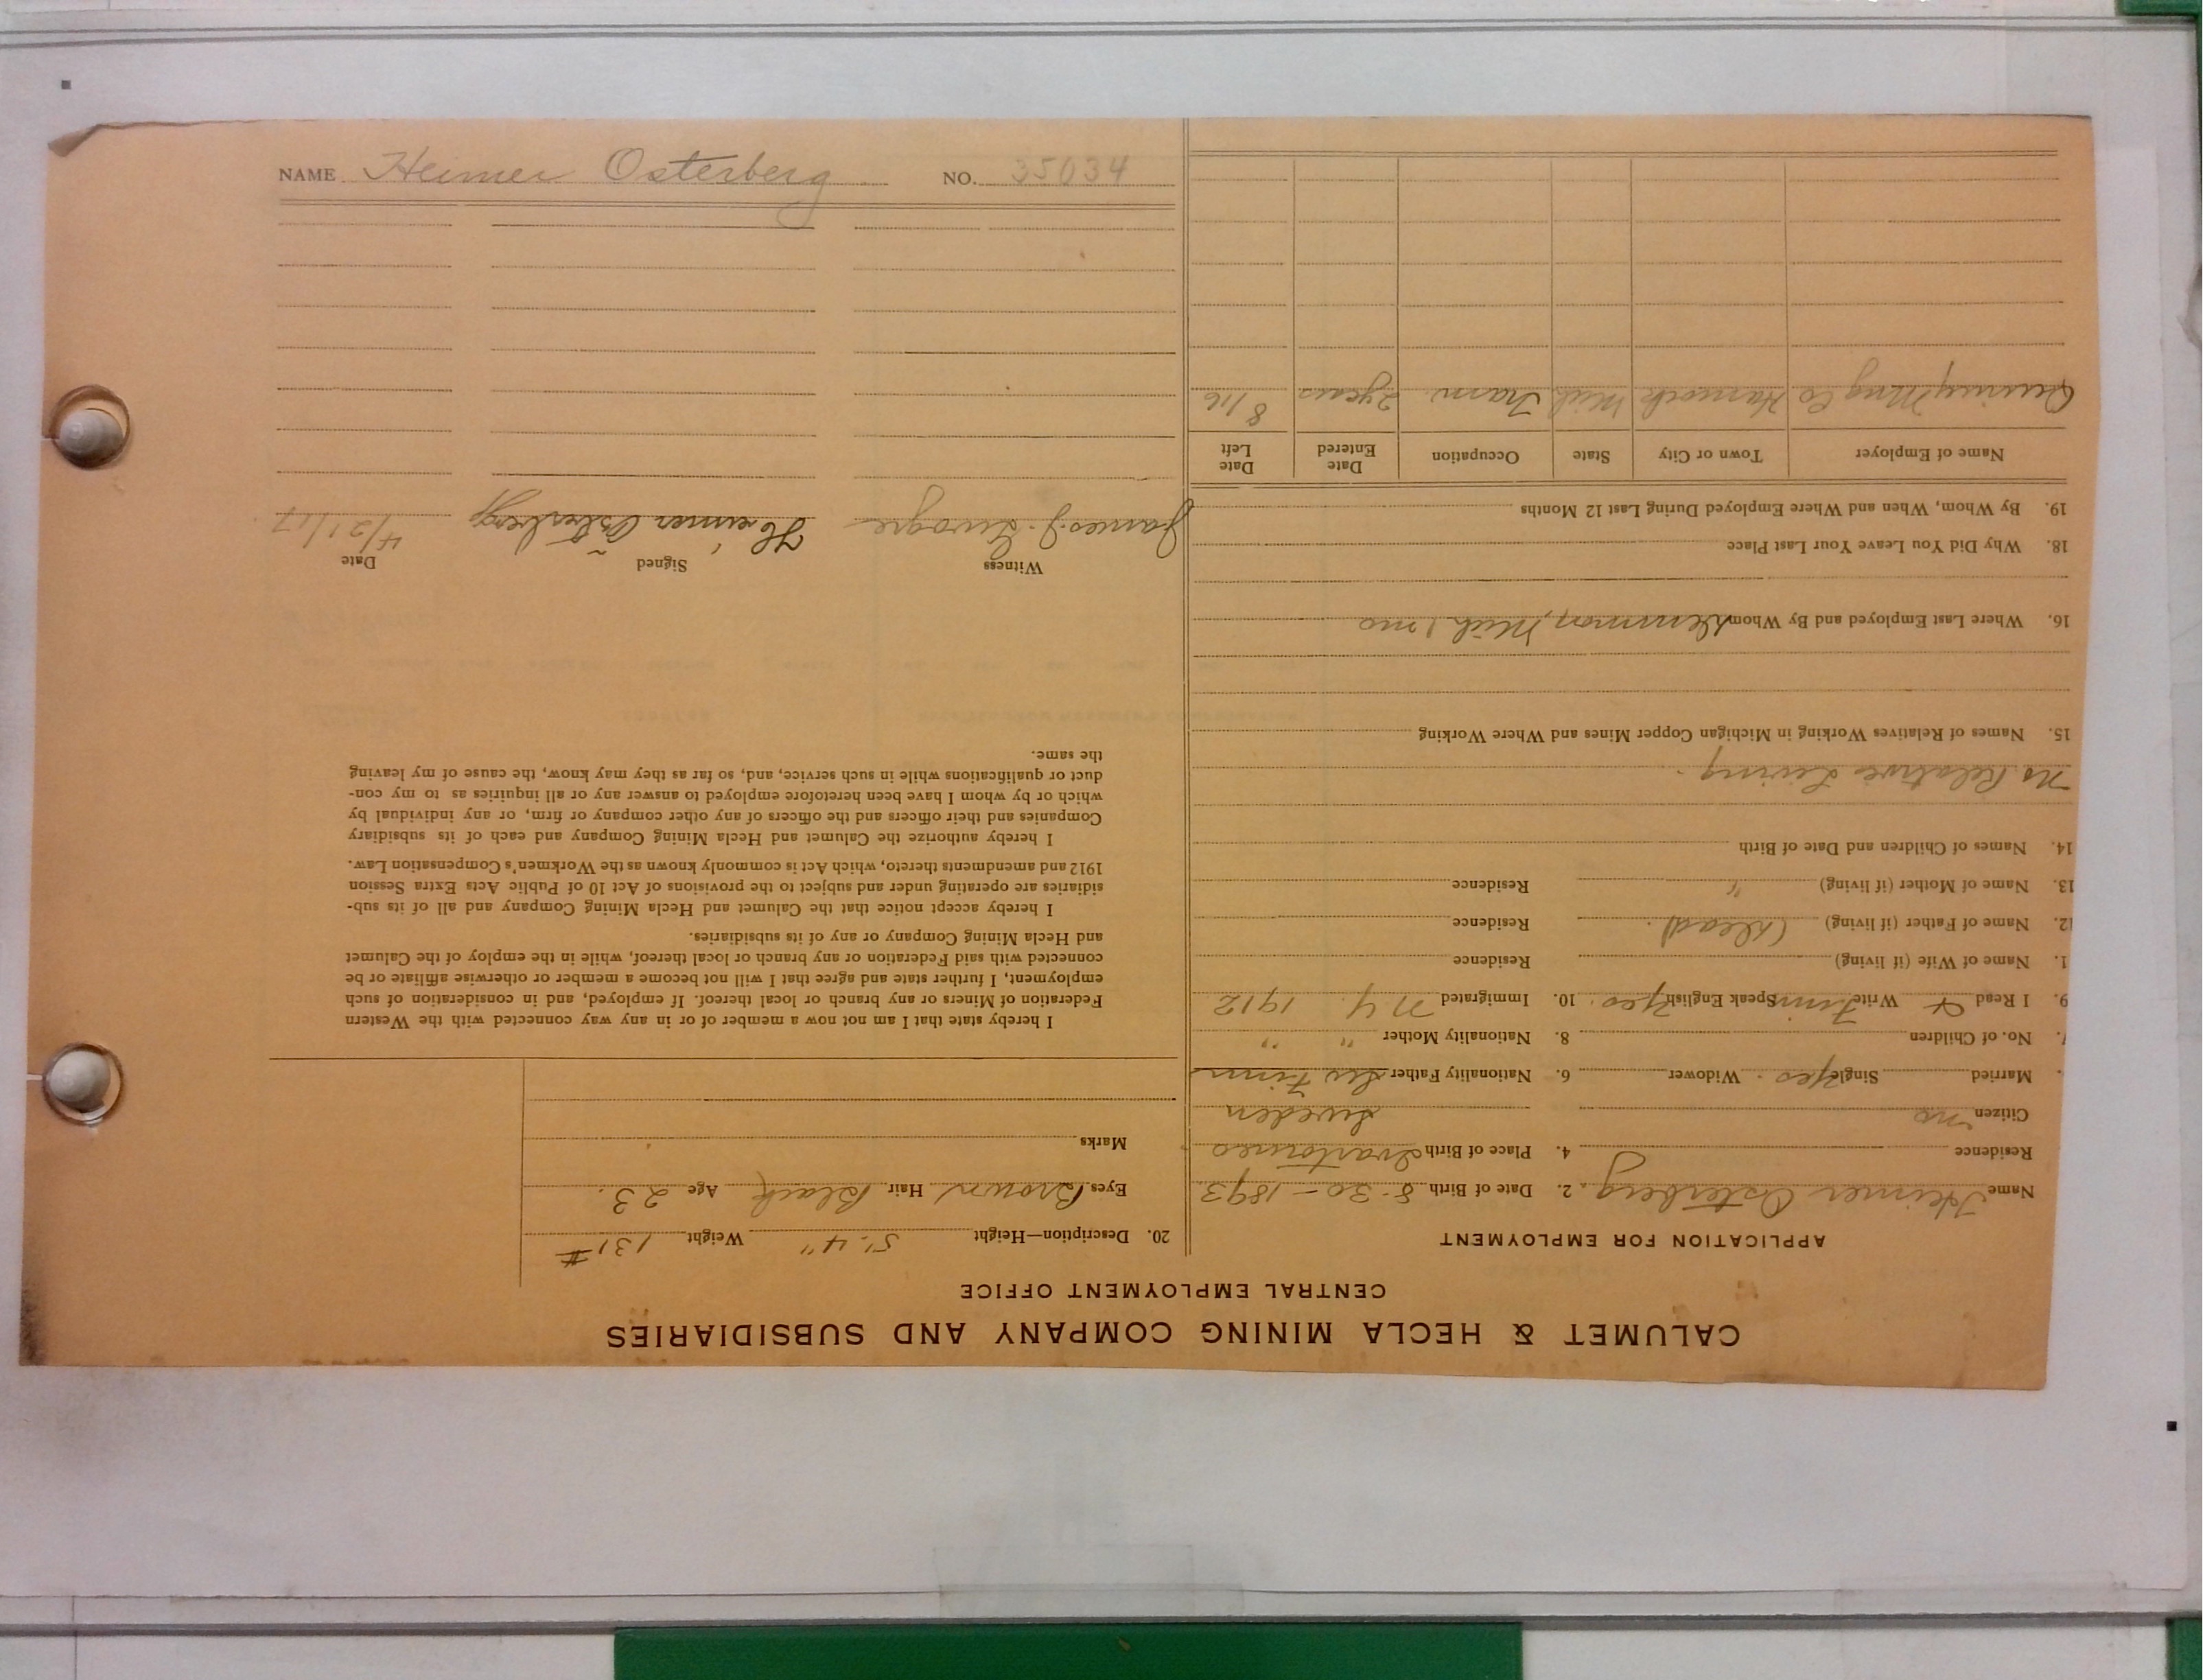 CALUMET & HECLA MINING COMPANY AND SUBSIDIARIES
CENTRAL EMPLOYMENT OFFICE
APPLICATION FOR EMPLOYMENT
Name Heimer Osterberg. 2. Date of Birth 8-30-1893
Residence 4. Place of Birth
Citizen no Sweden
Married Single Yes. Widower 6. Nationality Father Finn
No. of Children 8. Nationality Mother " "
9. I Read & Write Finn Speak English Yes. 10. Immigrated N.Y. 1912
1. Name of Wife (if living) Residence
12. Name of Father (if living) (Dead). Residence
13. Name of Mother (if living) " Residence
14. Names of Children and Date of Birth
No Relative Living.
15. Names of Relatives Working in Michigan Copper Mines and Where Working
16. Where Last Employed and By Whom Mich 1 mo
18. Why Did You Leave Your Last Place
19. By Whom, When and Where Employed During Last 12 Months
Name of Employer Town or City State Occupation Date Entered Date Left
Quincy Mng Co Hancock Mich Tram 2 years 8/16
20. Description—Height 5'-4" Weight 131#
Eyes Brown Hair Black Age 23.
Marks
I hereby state that I am not now a member of or in any way connected with the Western
Federation of Miners or any branch or local thereof. If employed, and in consideration of such
employment, I further state and agree that I will not become a member or otherwise affiliate or be
connected with said Federation or any branch or local thereof, while in the employ of the Calumet
and Hecla Mining Company or any of its subsidiaries.
I hereby accept notice that the Calumet and Hecla Mining Company and all of its sub-
sidiaries are operating under and subject to the provisions of Act 10 of Public Acts Extra Session
1912 and amendments thereto, which Act is commonly known as the Workmen's Compensation Law.
I hereby authorize the Calumet and Hecla Mining Company and each of its subsidiary
Companies and their officers and the officers of any other company or firm, or any individual by
which or by whom I have been heretofore employed to answer any or all inquiries as to my con-
duct or qualifications while in such service, and, so far as they may know, the cause of my leaving
the same.
Witness Signed Date
James J. Heimer Österberg 4/21/17
NAME Heimer Osterberg NO. 35034